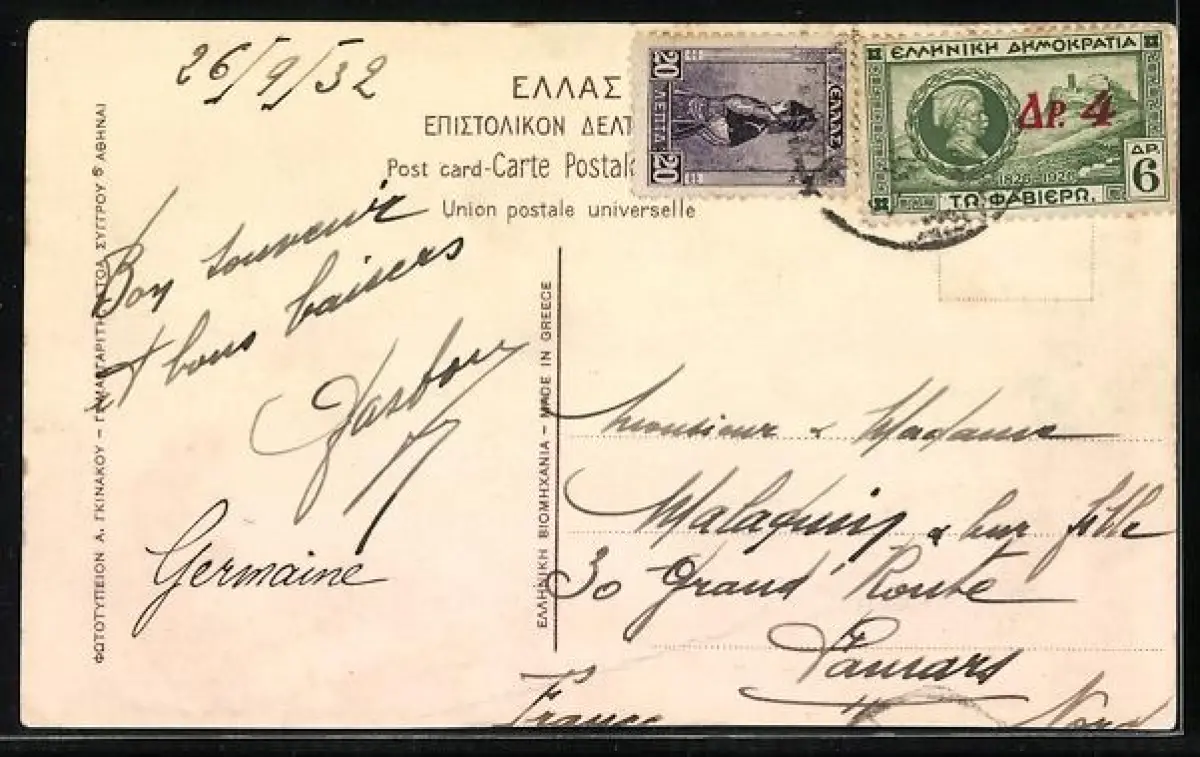 26/9/32
ΕΛΛΑΣ
ΕΠΙΣΤΟΛΙΚΟΝ ΔΕΛΤ
Post card-Carte Postale
Union postale universelle
20 ΛΕΠΤΑ 20
ΕΛΛΑΣ
ΕΛΛΗΝΙΚΗ ΔΗΜΟΚΡΑΤΙΑ
ΔΡ. 4
1826-1926
ΔΡ.
6
ΤΩ ΦΑΒΙΕΡΩ.
Bon souvenir
et bons baisers
Germaine
ΦΩΤΟΤΥΠΕΙΟΝ Λ. ΓΚΙΝΑΚΟΥ – ΣΤΟΑ ΣΥΓΓΡΟΥ 6 ΑΘΗΝΑΙ
ΕΛΛΗΝΙΚΗ ΒΙΟΜΗΧΑΝΙΑ – MADE IN GREECE
Monsieur & Madame
Malaquin & leur fille
30 Grand' Route
France
Nord